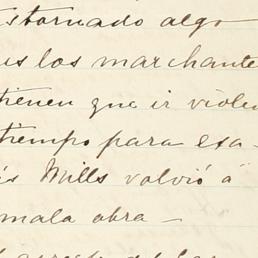 stornado algo
us los marchante
tienen que ir viole
tiempo para esa-
is Mills volvió a
mala obra —